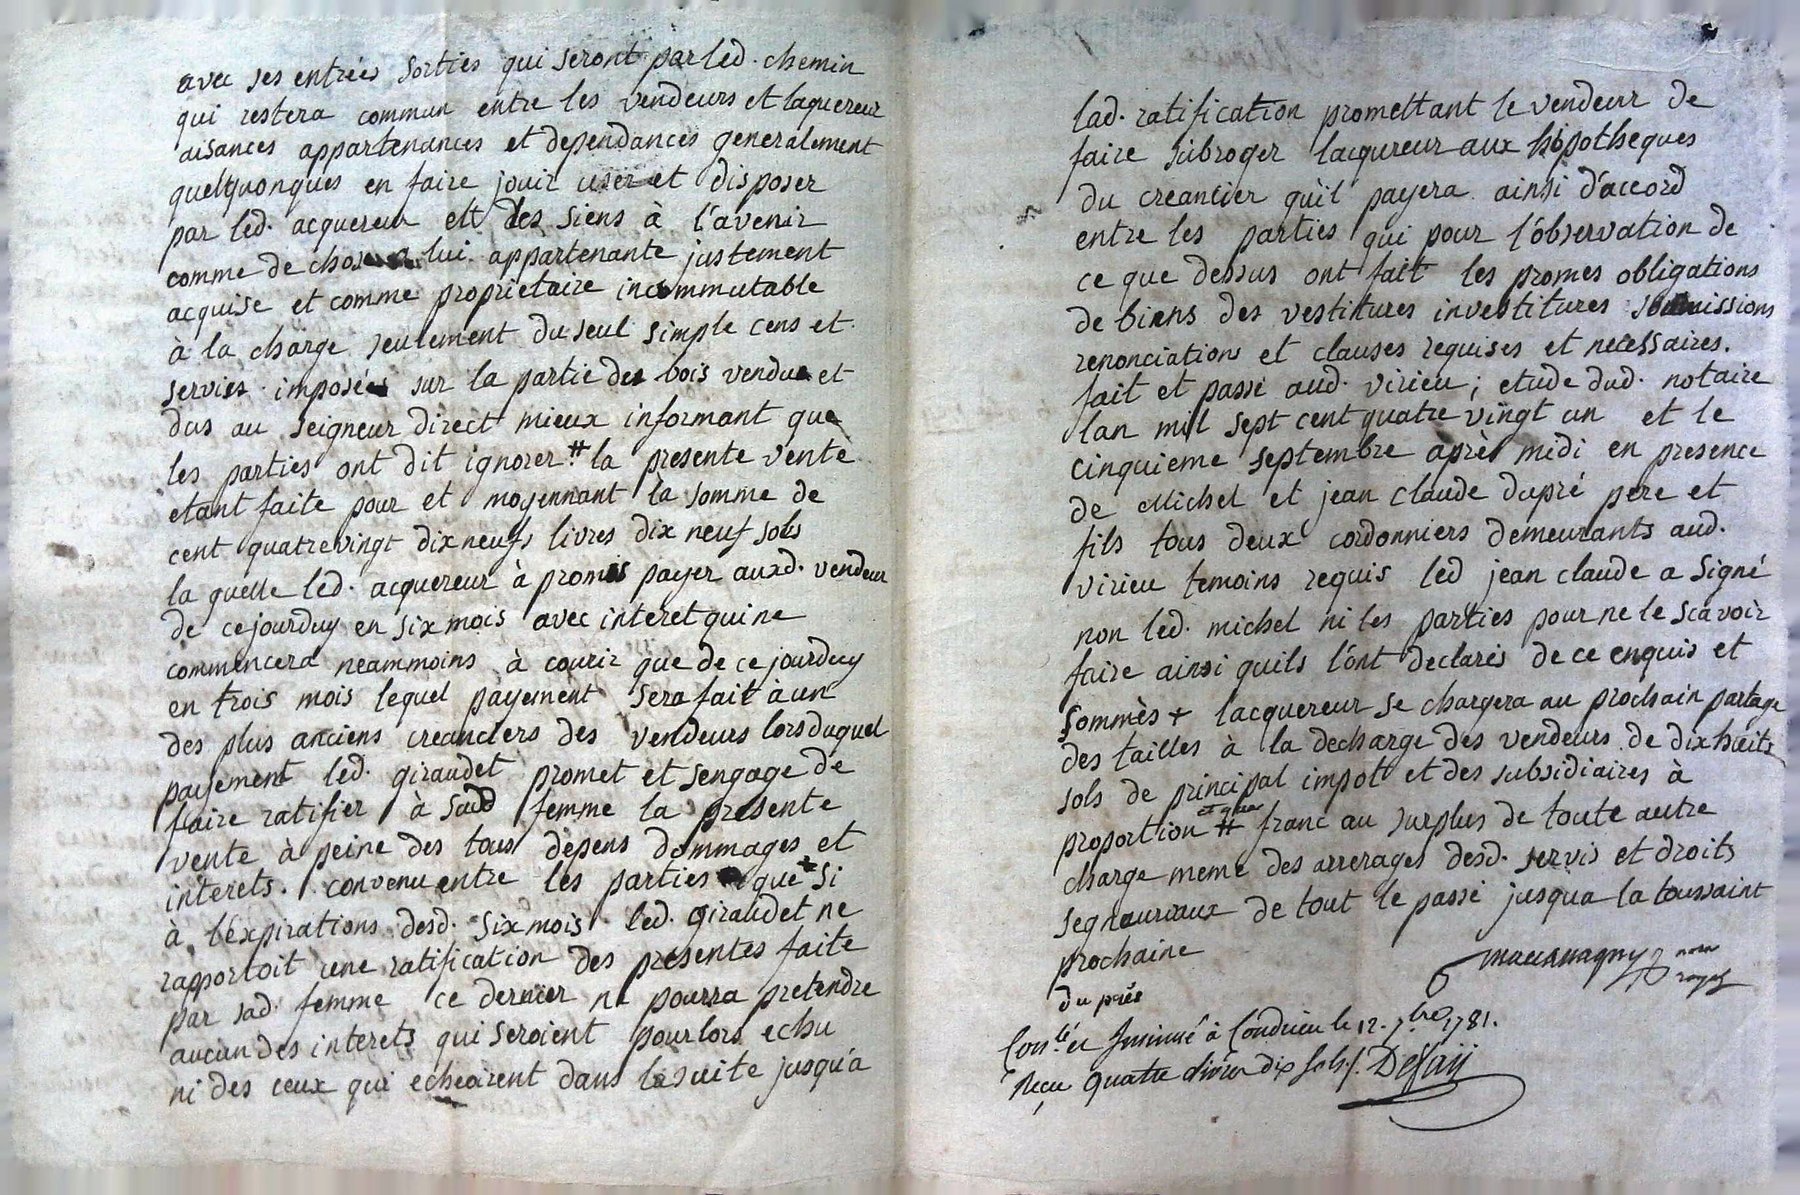 avec ses entrées sorties qui seront par led. chemin
qui restera commun entre les vendeurs et laquereur
aisances appartenances et dependances generalement
quelquonques en faire jouir user et disposer
par led. acquereur ett des siens à l'avenir
comme de chose a lui appartenante justement
acquise et comme proprietaire incommutable
à la charge seulement du seul simple cens et
servies imposées sur la partie des bois vendue et
dus au seigneur direct mieux informant que
les parties ont dit ignorer. # la presente vente
etant faite pour et moyennant la somme de
cent quatrevingt dix neufs livres dix neuf sols
la quelle led. acquereur à promis payer auxd. vendeur
de cejourduy en six mois avec interet qui ne
commencera neammoins à courir que de ce jourduy
en trois mois lequel payement sera fait à un
des plus anciens creanciers des vendeurs lorsduquel
payement led. giraudet promet et sengage de
faire ratifier à sad femme la presente
vente à peine des tous dépens dommages et
interets. convenu entre les parties que + si
à l'expirations desd. six mois led. giraudet ne
rapportoit une ratification des presentes faite
par sad. femme ce dernier ne pourra pretendre
aucun des interets qui seroient pourlors echu
ni des ceux qui echeoirent dans la suite jusqu'a
lad. ratification promettant le vendeur de
faire subroger lacqureur aux hipotheques
du creancier qu'il payera ainsi d'accord
entre les parties qui pour l'observation de
ce que dessus ont fait les promes obligations
de biens des vestitures investitures soumissions
renonciations et clauses requises et necessaires.
fait et passé aud. virieu; etude dud. notaire
lan mil sept cent quatre vingt un et le
cinquieme septembre après midi en presence
de Michel et jean claude dupré pere et
fils tous deux cordonniers demeurants aud.
virieu temoins requis led jean claude a signé
non led. michel ni les parties pour ne le scavoir
faire ainsi quils l'ont declarés de ce enquis et
sommès + lacquereur se chargera au prochain partage
des tailles à la decharge des vendeurs de dix huits
sols de principal impot et des subsidiaires à
proportion # franc au surplus de toute autre
charge meme des arrerages desd. servis et droits
segneuriaux de tout le passé jusqua la toussaint
prochaine
du prés
Con.lé et Insinué à Condrieu le 12. 7bre 1781.
Reçu quatre livres dix sols ./. Defaÿ